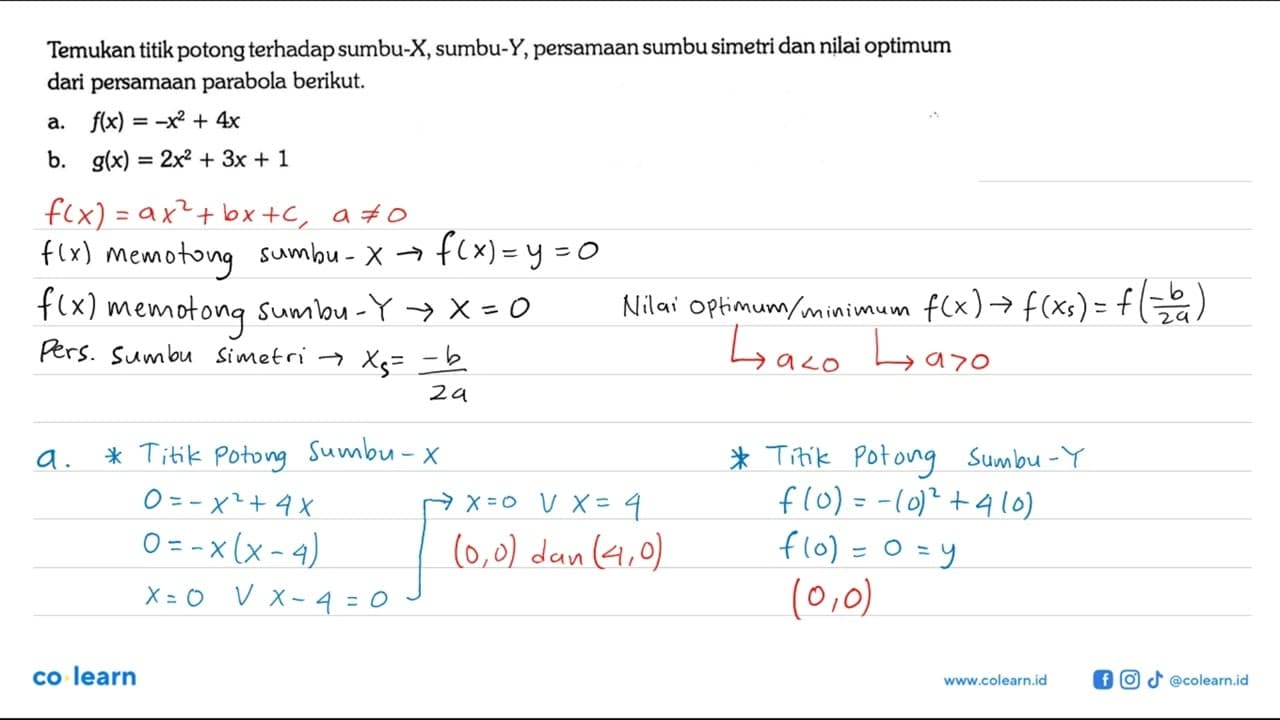 Temukan titik potong terhadap sumbu-X, sumbu-Y, persamaan sumbu simetri dan nilai optimum
dari persamaan parabola berikut.
a. f(x) = –x² + 4x
b. g(x) = 2x² + 3x + 1
f(x) = ax² + bx + c, a ≠ 0
f(x) memotong sumbu-X → f(x) = y = 0
f(x) memotong sumbu-Y → x = 0
Pers. sumbu simetri → xₛ = -b/2a
Nilai optimum/minimum f(x) → f(xₛ) = f(-b/2a)
↳ a<0 ↳ a>0
a. * Titik Potong Sumbu-X
0 = -x² + 4x
0 = -x(x-4)
x = 0 V x-4 = 0
→ x=0 V x = 4
(0,0) dan (4,0)
* Titik Potong Sumbu-Y
f(0) = -(0)² + 4(0)
f(0) = 0 = y
(0,0)
co learn
www.colearn.id
@colearn.id